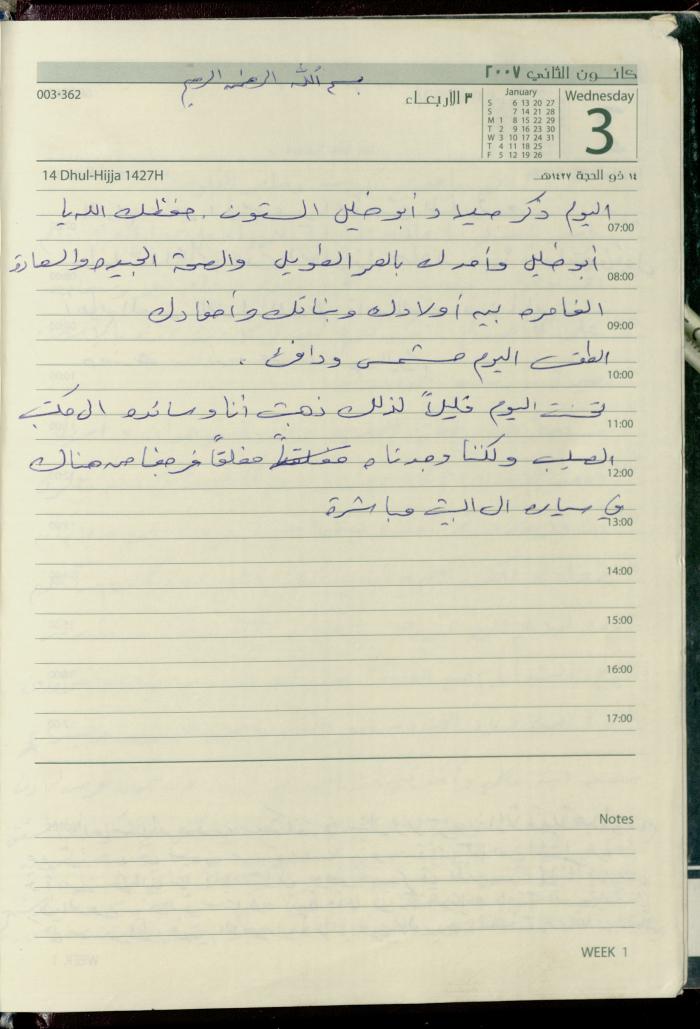 كانـون الثاني ٢٠٠٧
بسم الله الرحمن الرحيم
003-362
٣ الأربعـاء
January
S 6 13 20 27
S 7 14 21 28
M 1 8 15 22 29
T 2 9 16 23 30
W 3 10 17 24 31
T 4 11 18 25
F 5 12 19 26
Wednesday
3
14 Dhul-Hijja 1427H
١٤ ذو الحجة ١٤٢٧هـ
اليوم ذكر ميلاد أبو خليل الستون . حفظك الله يا
07:00
أبو خليل وأمدك بالعمر الطويل والصحة الجيده والسعادة
08:00
الغامره بين أولادك وبناتك وأحفادك
09:00
الطقس اليوم مشمس ودافئ .
10:00
اليوم قليلاً لذلك ذهبت أنا وسائده الى مكتب
11:00
الطبيب ولكننا وجدناه مغلقاً فرجعنا من هناك
12:00
في سياره الى البيت مباشرة
13:00
14:00
15:00
16:00
17:00
Notes
WEEK 1